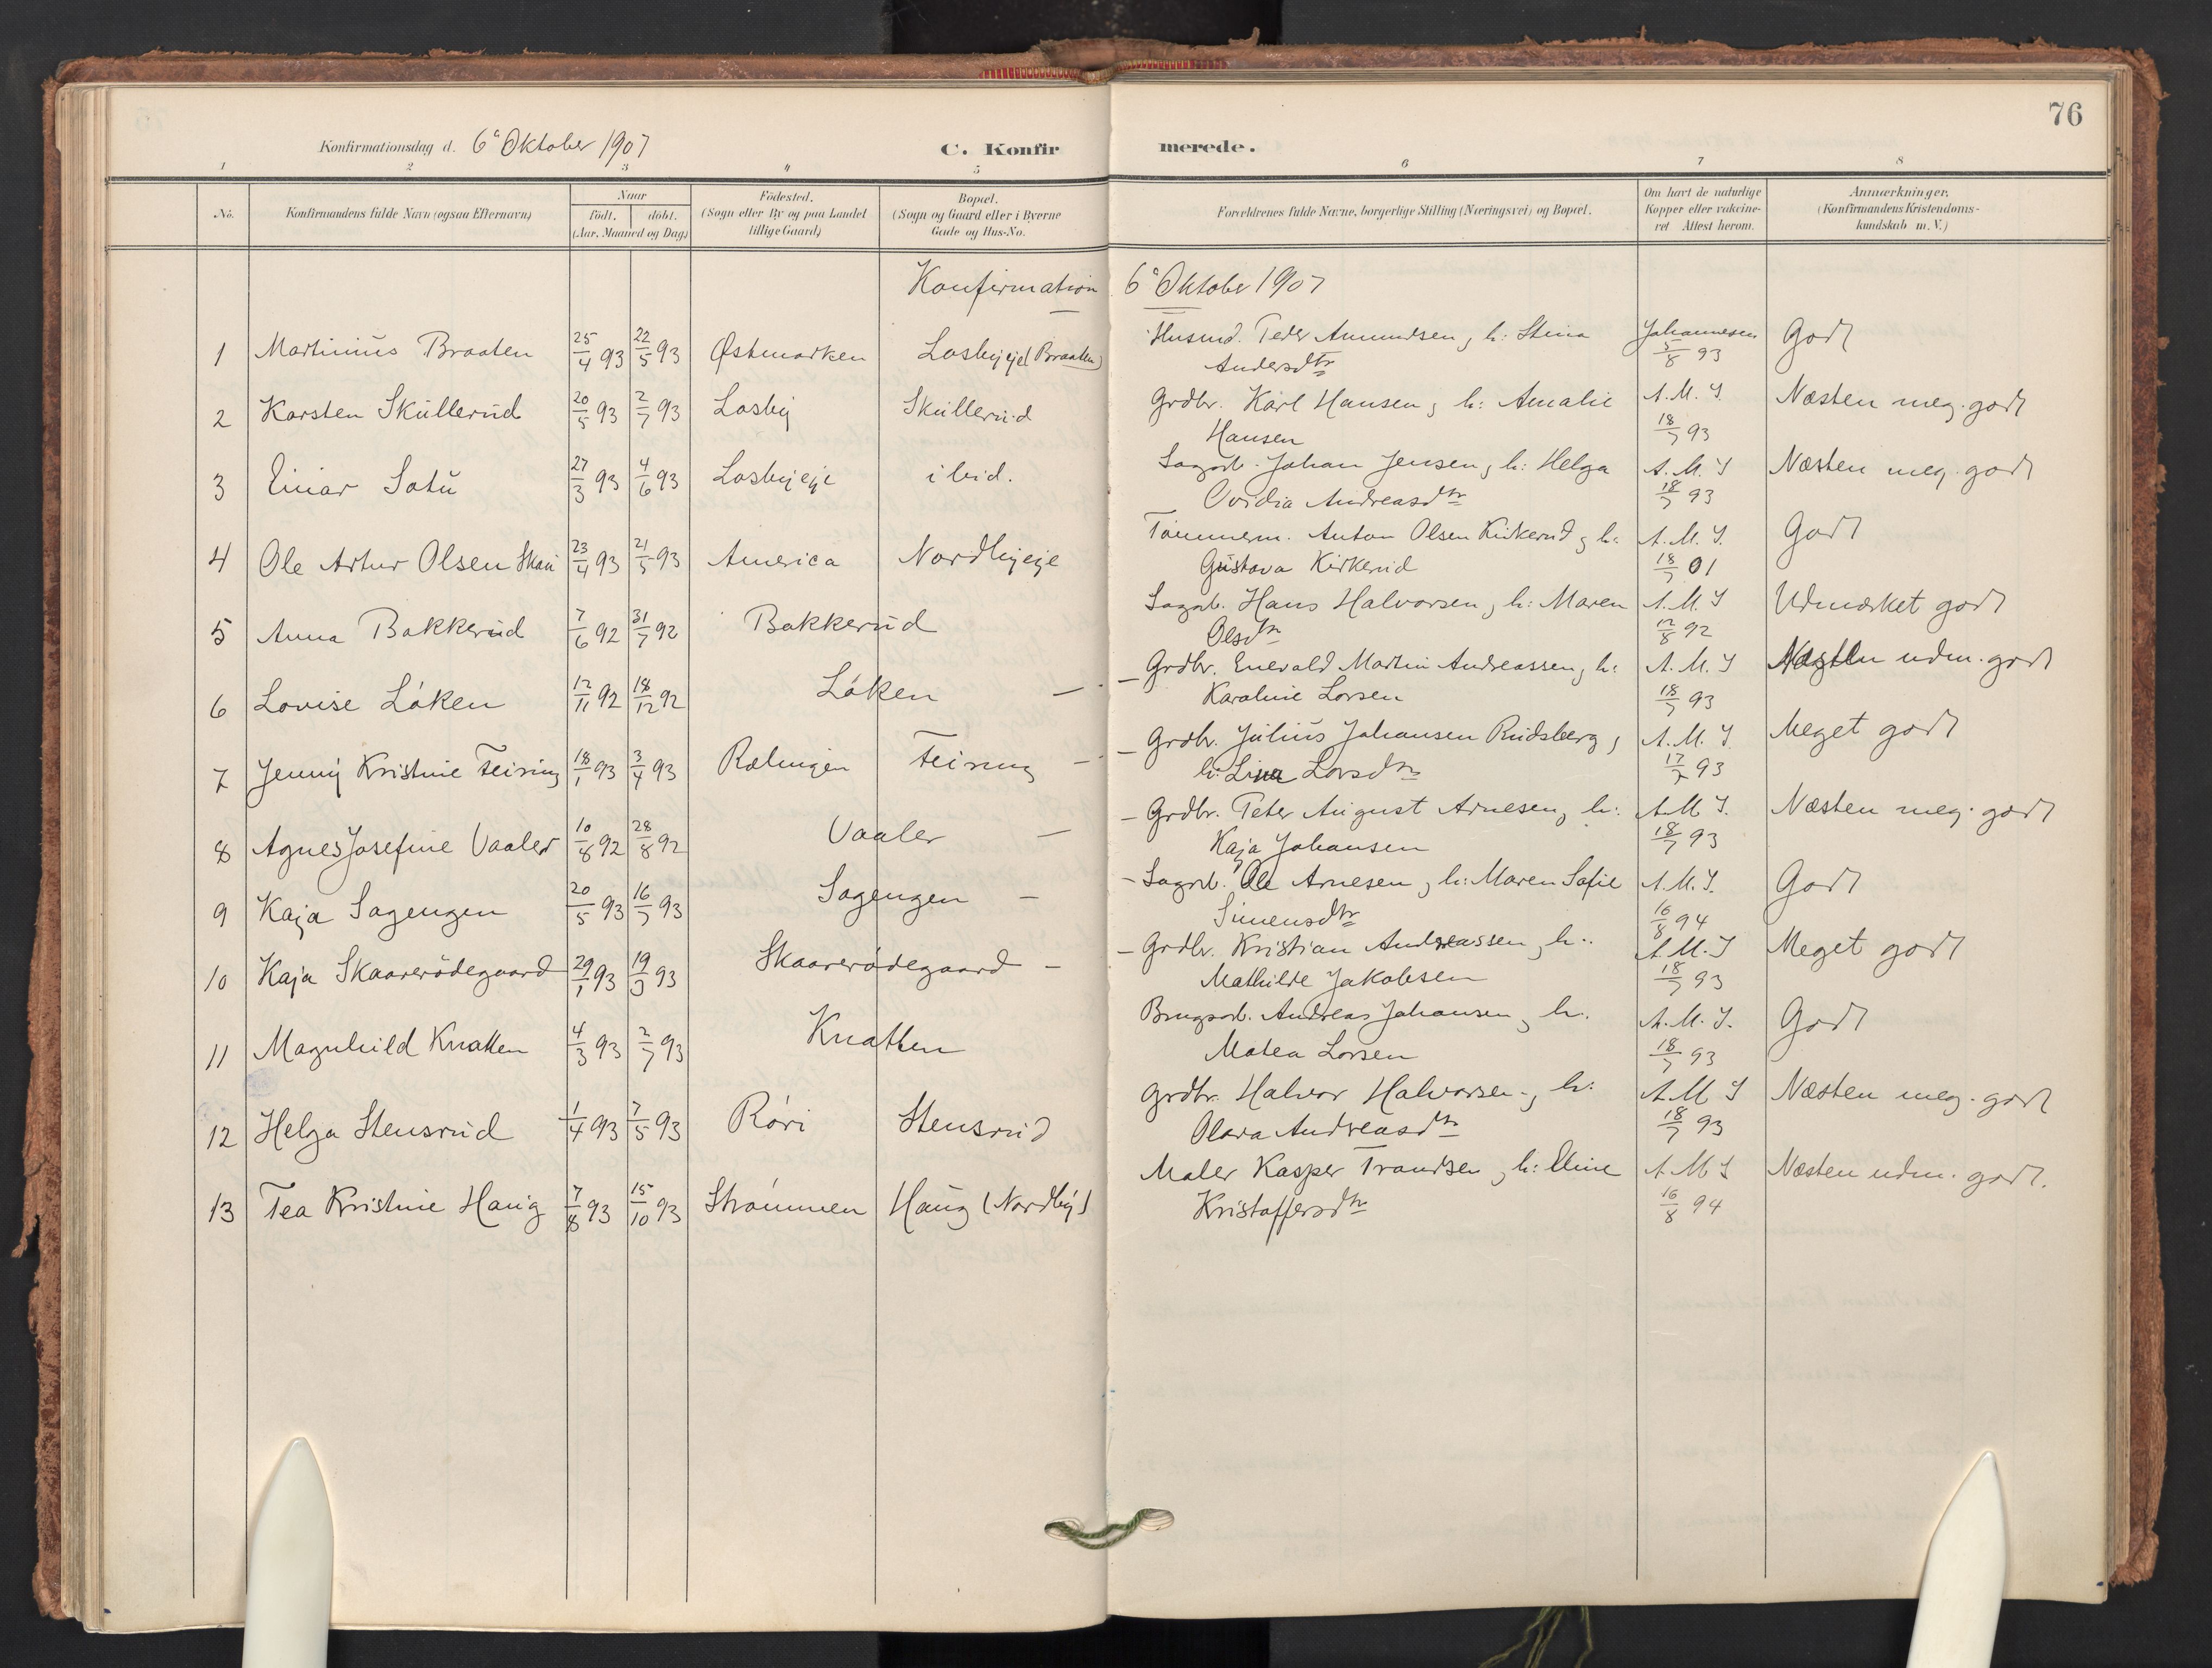 76
Konfirmationsdag d. 6' Oktober 1907
C. Konfirmerede.
1 2 3 4 5 6 7 8
No.
Konfirmandens fulde Navn (ogsaa Efternavn)
Naar
födt. döbt.
(Aar, Maaned og Dag)
Födested.
(Sogn eller By og paa Landet
tillige Gaard)
Bopæl.
(Sogn og Gaard eller i Byerne
Gade og Hus-No.
Forældrenes fulde Navne, borgerlige Stilling (Næringsvei) og Bopæl.
Om havt de naturlige
Kopper eller vakcine-
ret Attest herom.
Anmærkninger.
(Konfirmandens Kristendoms-
kundskab m. V.)
Konfirmation 6' Oktober 1907
1 Martinius Braaten 25/4 93 22/5 93 Østmarken Losbyeje (Braaten) Husmd. Peder Amundsen, h: Stina Johannesen Godt
Andersdtr 5/8 93
2 Karsten Skullerud 20/5 93 2/7 93 Losby Skullerud Grdbr. Karl Hansen, h: Amalie A. M. I. Næsten meg. godt
Hansen 18/7 93
3 Einar Satu 27/3 93 4/6 93 Losbyeje ibid. Sagarb. Johan Jensen, h: Helga A. M. I Næsten meg. godt
Ovidia Andreasdtr 18/7 93
4 Ole Artur Olsen Skau 23/4 93 21/5 93 America Nordbyeje Tömmerm. Anton Olsen Kirkerud, h: A. M. I. Godt
Gustava Kirkerud 18/7 01
5 Anna Bakkerud 7/6 92 31/7 92 Bakkerud Sagarb. Hans Halvorsen, h: Maren A. M. I Udmærket godt
Olsdtr 12/8 92
6 Lovise Löken 12/11 92 18/12 92 Löken — — Grdbr. Enevald Martin Andreassen, h: A. M. I Næsten udm. godt
Karoline Larsen 18/7 93
7 Jenny Kristine Feiring 18/1 93 3/4 93 Rælingen Feiring — — Grdbr. Julius Johansen Rudsberg, A. M. I. Meget godt
h: Lina Larsdtr 17/7 93
8 Agnes Josefine Vaaler 10/8 92 28/8 92 Vaaler — — Grdbr. Peter August Arnesen, h: A. M. I. Næsten meg. godt
Kaja Johansen 18/7 93
9 Kaja Sagengen 20/5 93 16/7 93 Sagengen — — Sagarb. Ole Arnesen, h: Maren Sofie A. M. I. Godt
Simensdtr 16/8 94
10 Kaja Skaarerödegaard 29/1 93 19/3 93 Skaarerödegaard — — Grdbr. Kristian Andreassen, h: A. M. I Meget godt
Mathilde Jakobsen 18/7 93
11 Magnhild Knatten 4/3 93 2/7 93 Knatten Brugsarb. Andreas Johansen, h. A. M. I. Godt
Matea Larsen 18/7 93
12 Helga Stensrud 1/4 93 7/5 93 Röri Stensrud Grdbr. Halvor Halvorsen, h: A. M. I Næsten meg. godt
Olava Andreasdtr 18/7 93
13 Tea Kristine Haug 7/8 93 15/10 93 Strömmen Haug (Nordby) Maler Kasper Trandsen, h: Eline A. M. I Næsten udm. godt.
Kristoffersdtr 16/8 94